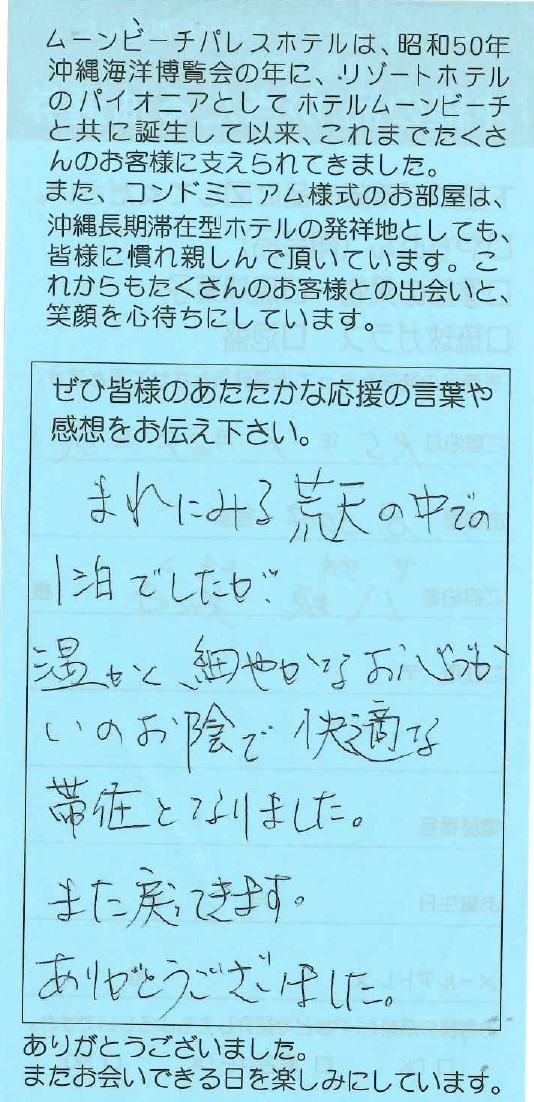 ムーンビーチパレスホテルは、昭和50年
沖縄海洋博覧会の年に、リゾートホテル
のパイオニアとしてホテルムーンビーチ
と共に誕生して以来、これまでたくさ
んのお客様に支えられてきました。
また、コンドミニアム様式のお部屋は、
沖縄長期滞在型ホテルの発祥地としても、
皆様に慣れ親しんで頂いています。こ
れからもたくさんのお客様との出会いと、
笑顔を心待ちにしています。
ぜひ皆様のあたたかな応援の言葉や
感想をお伝え下さい。
まれにみる荒天の中での
1泊でしたが、
温かく、細やかなお心づか
いのお陰で快適な
滞在となりました。
また戻ってきます。
ありがとうございました。
ありがとうございました。
またお会いできる日を楽しみにしています。